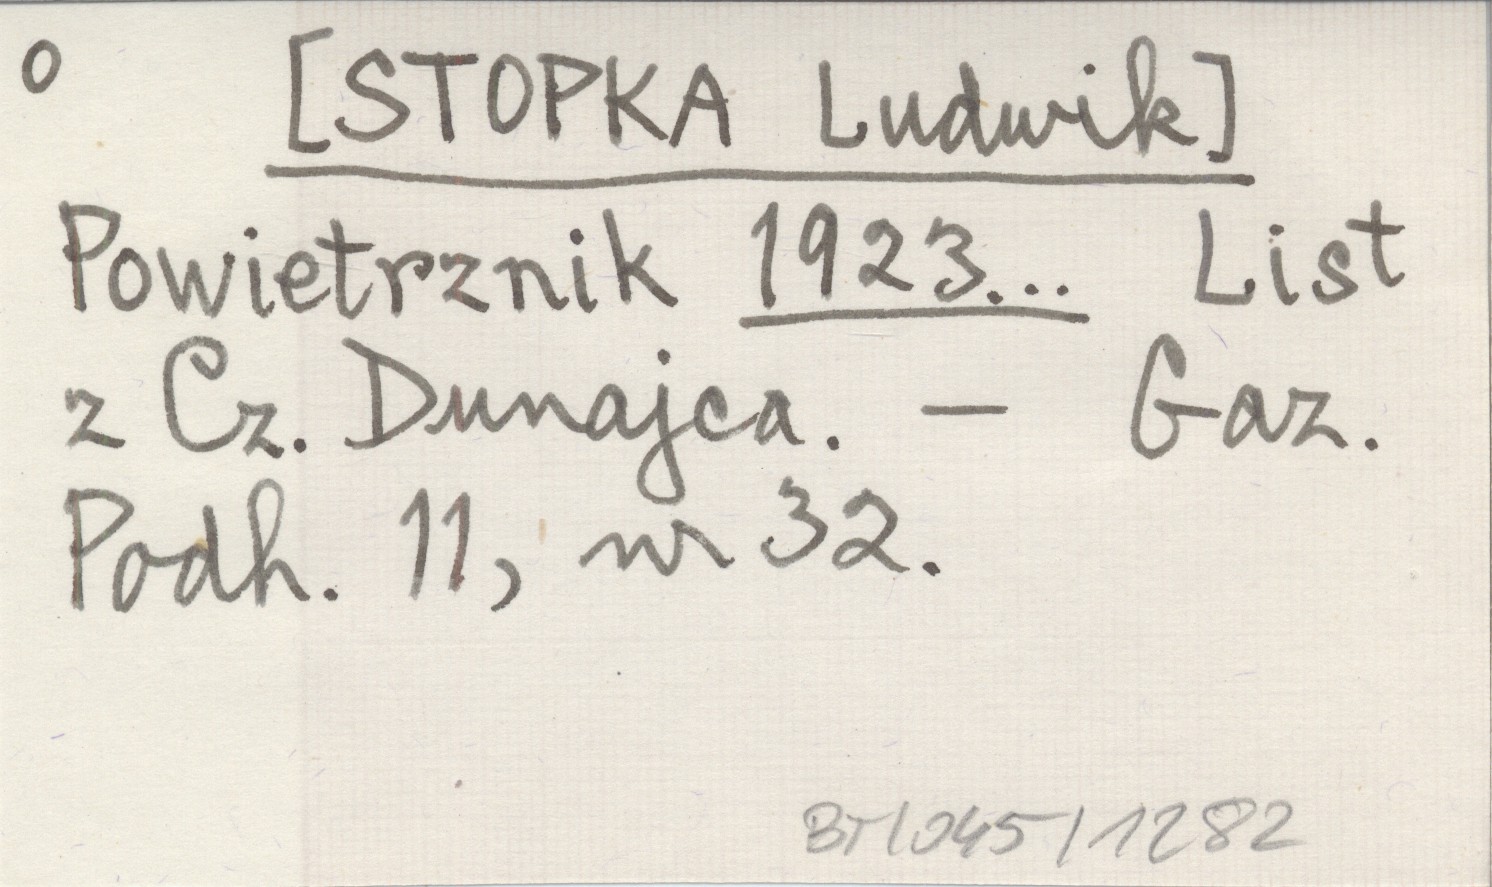 o [STOPKA Ludwik]
Powietrznik 1923... List
z Cz. Dunajca. — Gaz.
Podh. 11, nr 32.
BT/045/1282